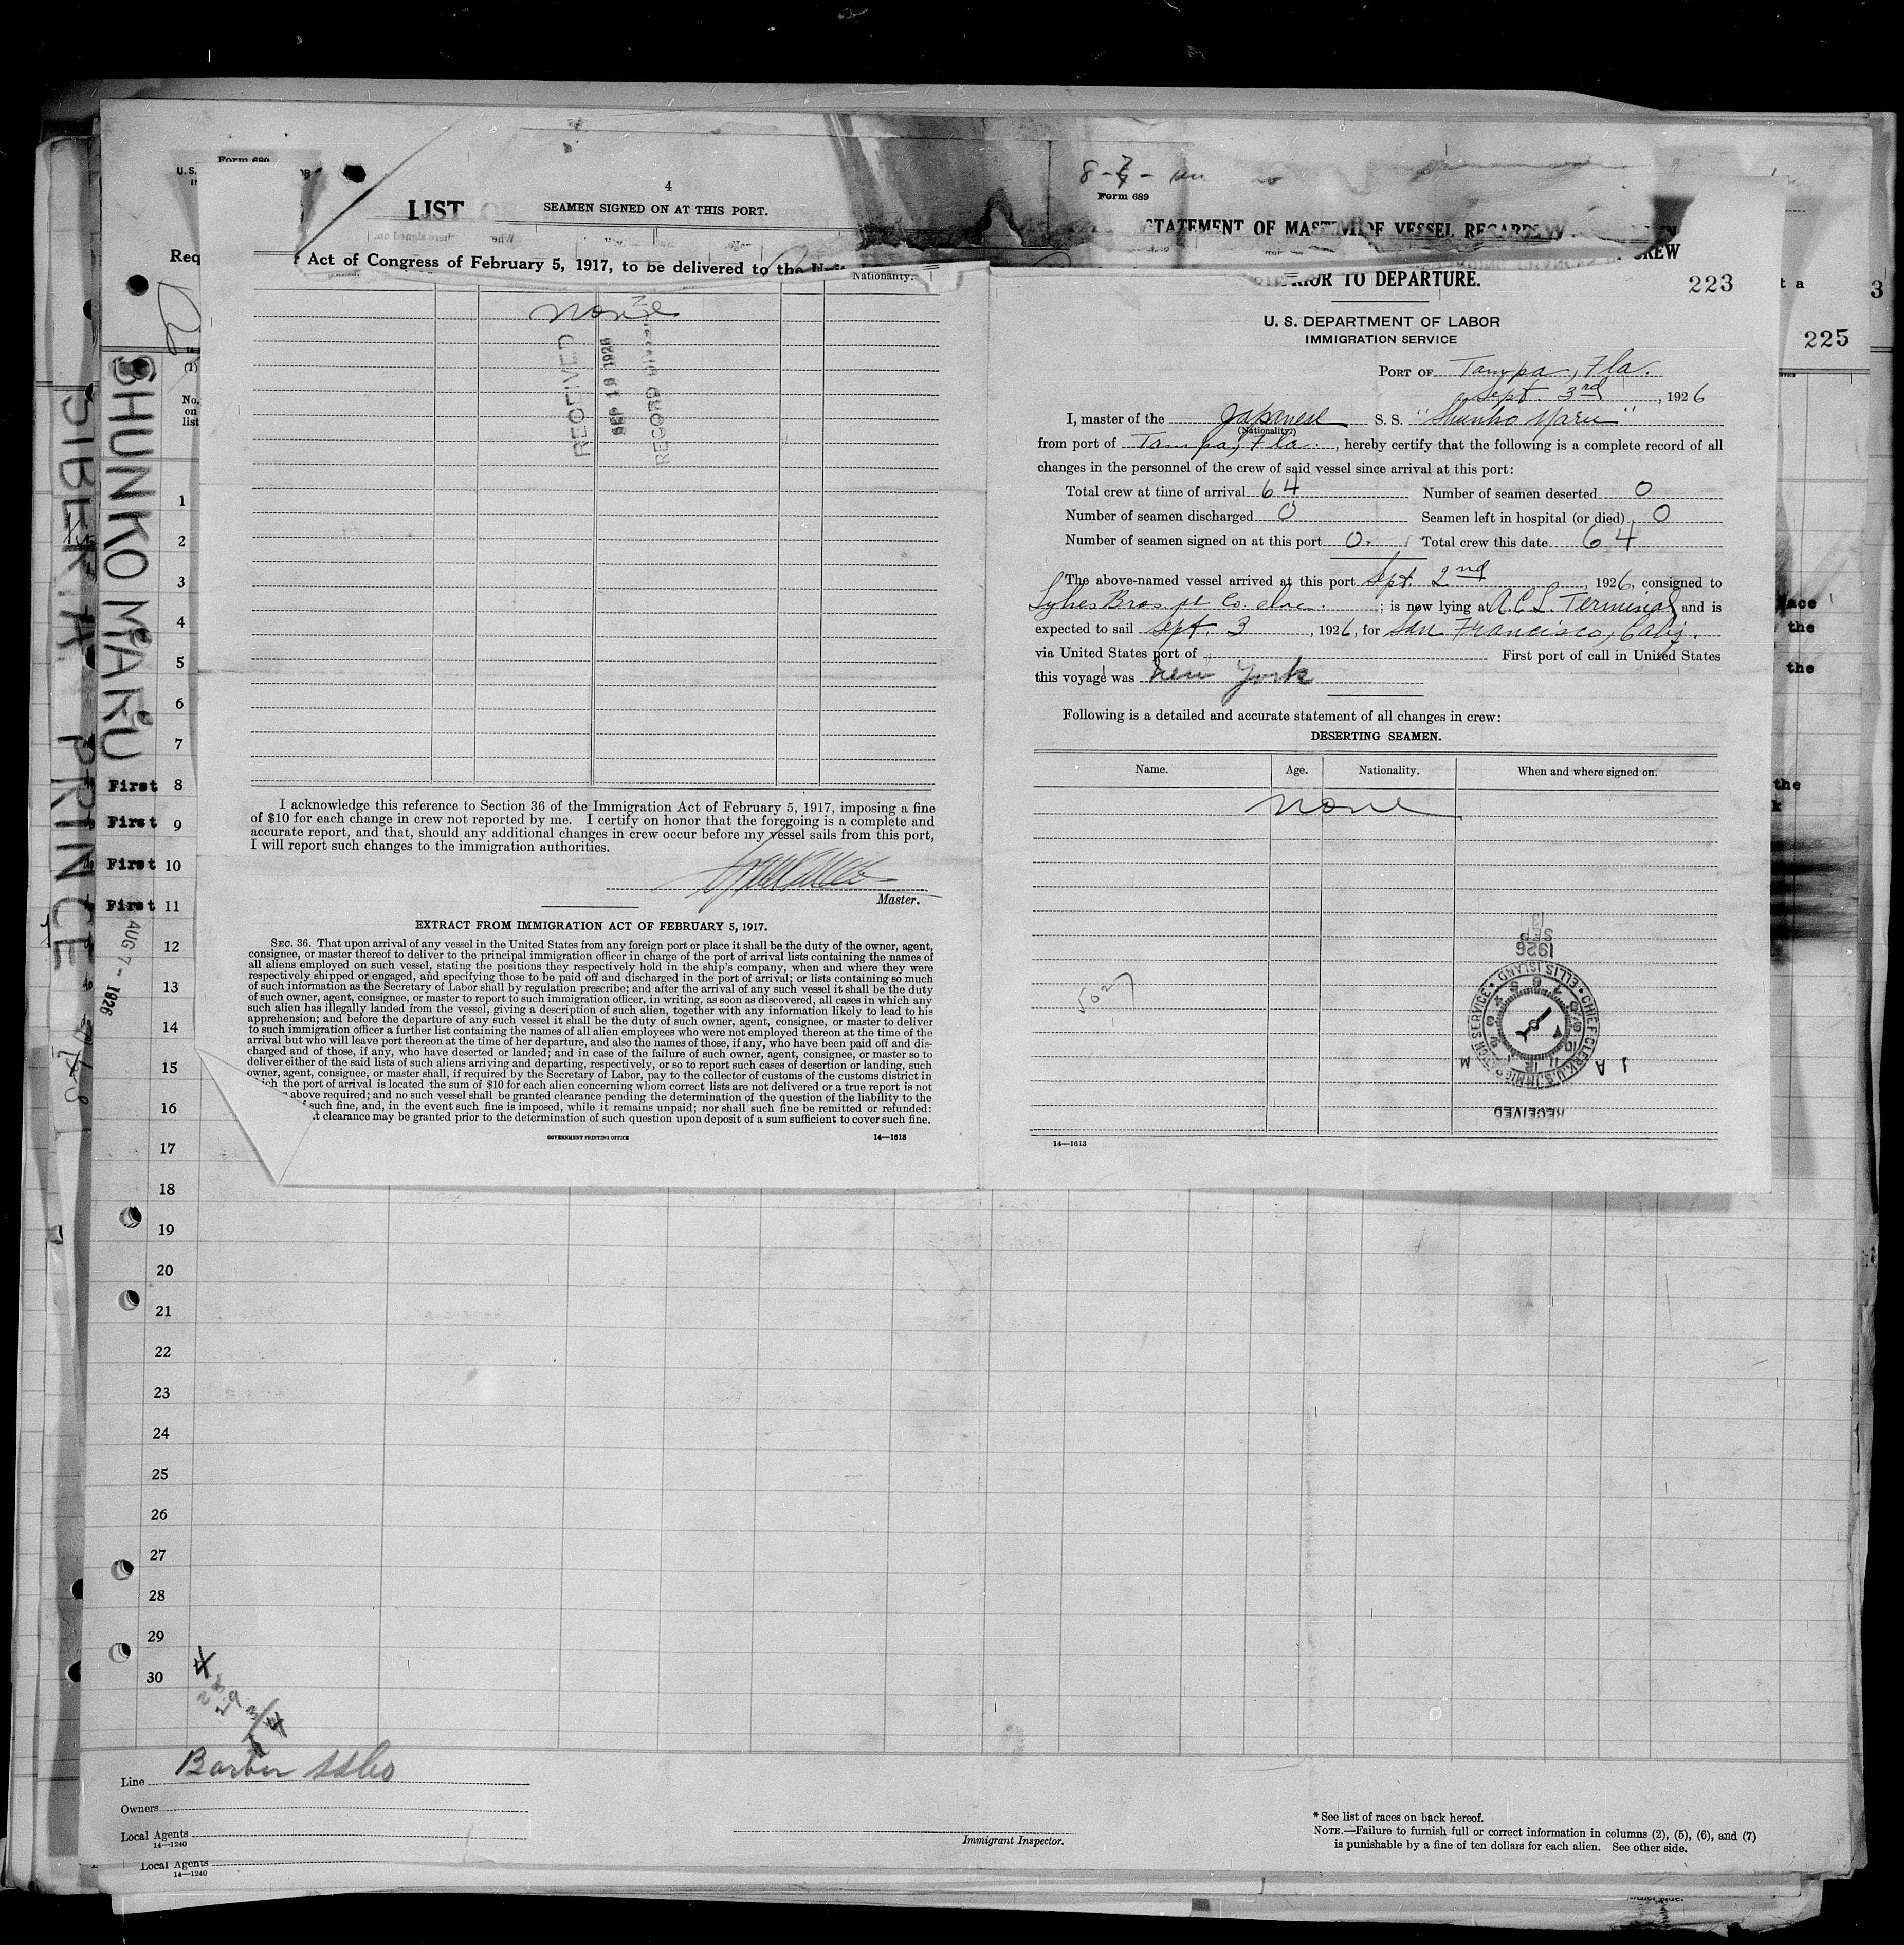 Form 689
U. S.
4
LIST
SEAMEN SIGNED ON AT THIS PORT.
Req
Act of Congress of February 5, 1917, to be delivered to the
Nationality.
None
RECEIVED
SEP 18 1926
RECORD
SHUNKO MARU
SIBERIA PRINCE
AUG 7 - 1926
(1)
No.
on
list
1
2
3
4
5
6
7
First 8
First 9
First 10
First 11
12
13
14
15
16
17
18
19
20
21
22
23
24
25
26
27
28
29
30
I acknowledge this reference to Section 36 of the Immigration Act of February 5, 1917, imposing a fine
of $10 for each change in crew not reported by me. I certify on honor that the foregoing is a complete and
accurate report, and that, should any additional changes in crew occur before my vessel sails from this port,
I will report such changes to the immigration authorities.
Master.
EXTRACT FROM IMMIGRATION ACT OF FEBRUARY 5, 1917.
SEC. 36. That upon arrival of any vessel in the United States from any foreign port or place it shall be the duty of the owner, agent,
consignee, or master thereof to deliver to the principal immigration officer in charge of the port of arrival lists containing the names of
all aliens employed on such vessel, stating the positions they respectively hold in the ship's company, when and where they were
respectively shipped or engaged, and specifying those to be paid off and discharged in the port of arrival; or lists containing so much
of such information as the Secretary of Labor shall by regulation prescribe; and after the arrival of any such vessel it shall be the duty
of such owner, agent, consignee, or master to report to such immigration officer, in writing, as soon as discovered, all cases in which any
such alien has illegally landed from the vessel, giving a description of such alien, together with any information likely to lead to his
apprehension; and before the departure of any such vessel it shall be the duty of such owner, agent, consignee, or master to deliver
to such immigration officer a further list containing the names of all alien employees who were not employed thereon at the time of the
arrival but who will leave port thereon at the time of her departure, and also the names of those, if any, who have been paid off and dis-
charged and of those, if any, who have deserted or landed; and in case of the failure of such owner, agent, consignee, or master so to
deliver either of the said lists of such aliens arriving and departing, respectively, or so to report such cases of desertion or landing, such
owner, agent, consignee, or master shall, if required by the Secretary of Labor, pay to the collector of customs of the customs district in
which the port of arrival is located the sum of $10 for each alien concerning whom correct lists are not delivered or a true report is not
above required; and no such vessel shall be granted clearance pending the determination of the question of the liability to the
such fine, and, in the event such fine is imposed, while it remains unpaid; nor shall such fine be remitted or refunded:
t clearance may be granted prior to the determination of such question upon deposit of a sum sufficient to cover such fine.
GOVERNMENT PRINTING OFFICE
14—1613
Form 689
STATEMENT OF MASTER OF VESSEL REGARDING
CREW
PRIOR TO DEPARTURE.
223
3
225
U. S. DEPARTMENT OF LABOR
IMMIGRATION SERVICE
PORT OF Tampa, Fla.
Sept. 3rd, 1926
I, master of the Japanese S. S. "Shunko Maru"
(Nationality.)
from port of Tampa, Fla., hereby certify that the following is a complete record of all
changes in the personnel of the crew of said vessel since arrival at this port:
Total crew at time of arrival 64 Number of seamen deserted 0
Number of seamen discharged 0 Seamen left in hospital (or died) 0
Number of seamen signed on at this port 0. Total crew this date 64
The above-named vessel arrived at this port Sept. 2nd, 1926, consigned to
Lykes Bros Co. Inc.; is now lying at A.C.L. Terminal and is
expected to sail Sept. 3, 1926, for San Francisco, Calif.
via United States port of First port of call in United States
this voyage was New York
Following is a detailed and accurate statement of all changes in crew:
DESERTING SEAMEN.
Name. Age. Nationality. When and where signed on.
None
1926
SEP
13
CHIEF CLERK, U.S. IMMIGRATION SERVICE • ELLIS ISLAND
A M
RECEIVED
14—1613
the
the
the
Line Barber SS Co
Owners
Local Agents
14—1240
Local Agents
14—1240
Immigrant Inspector.
* See list of races on back hereof.
NOTE.—Failure to furnish full or correct information in columns (2), (5), (6), and (7)
is punishable by a fine of ten dollars for each alien. See other side.